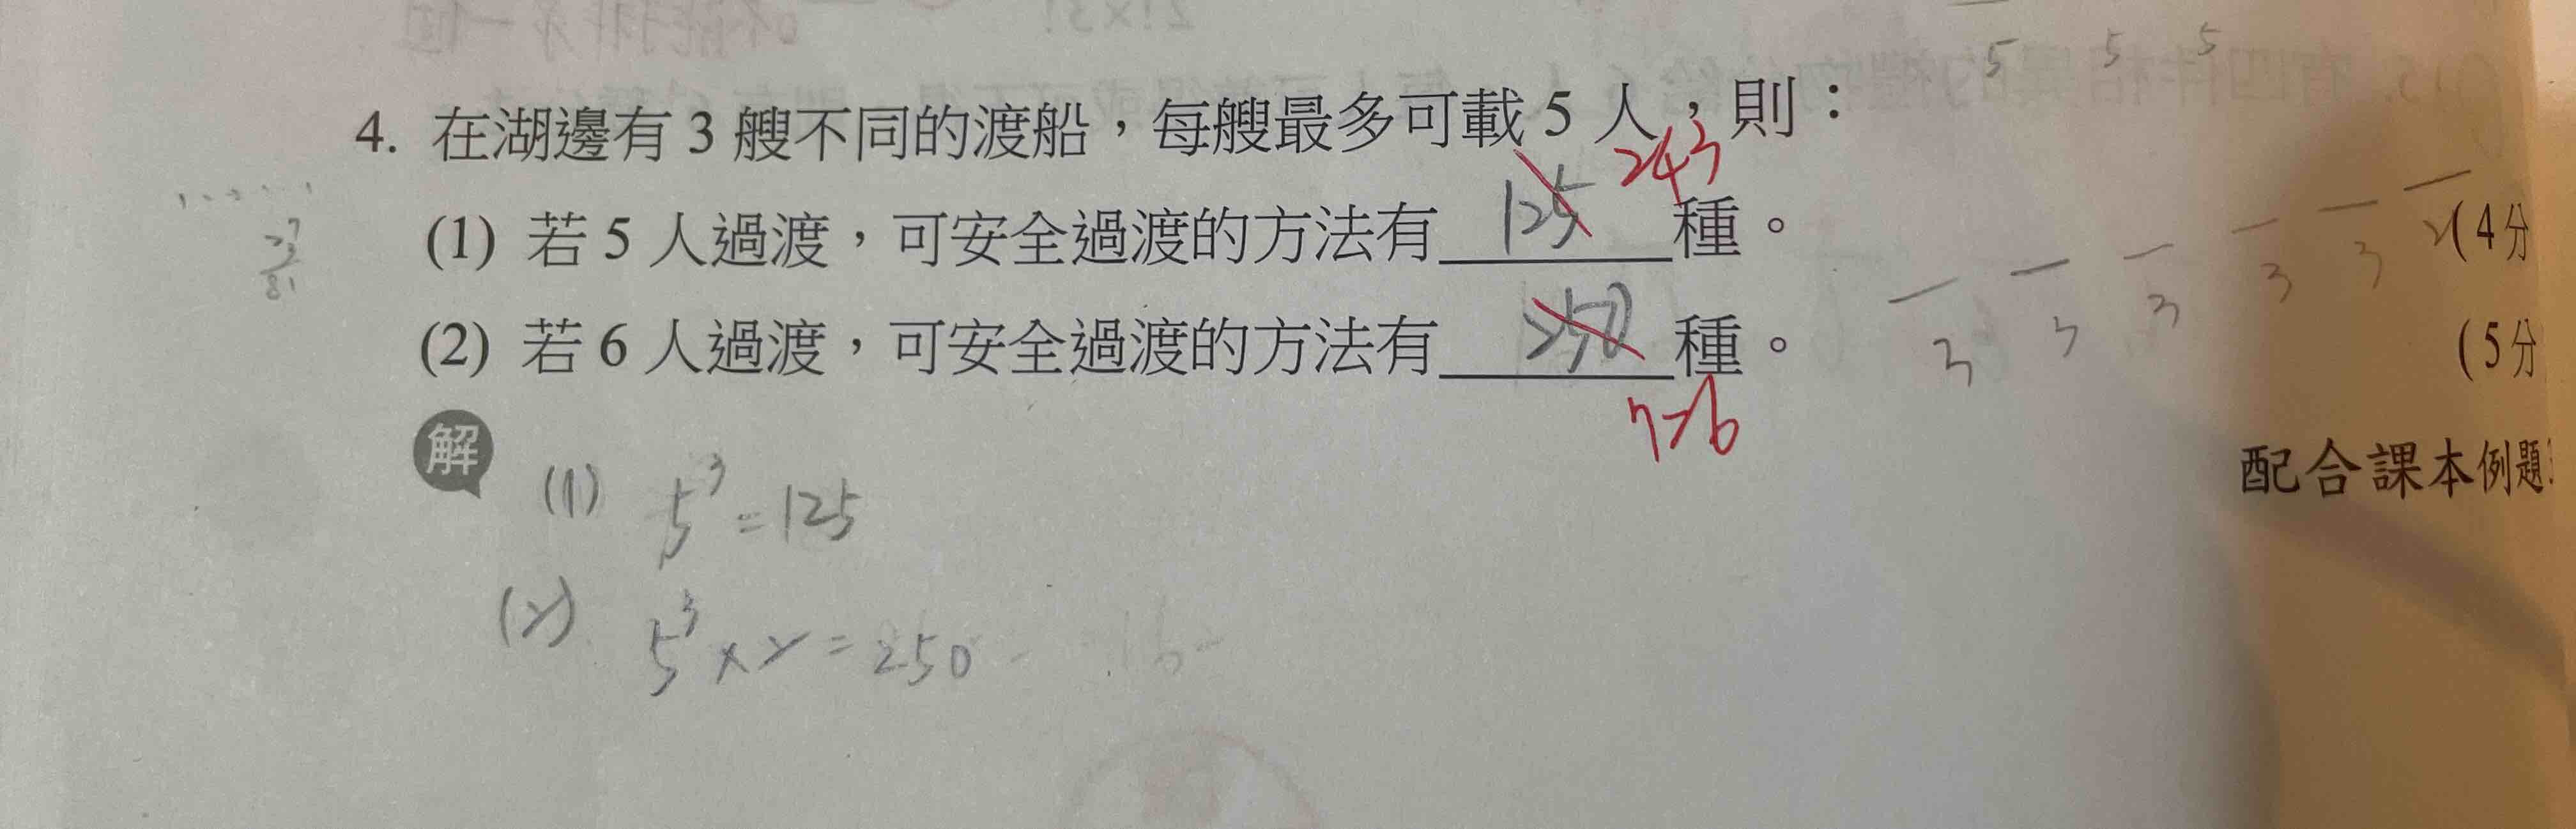 5 5 5
4. 在湖邊有 3 艘不同的渡船，每艘最多可載 5 人，則：
243
(1) 若 5 人過渡，可安全過渡的方法有 125 種。 (4分
27
3
81
3 3 3 3 3 2
(2) 若 6 人過渡，可安全過渡的方法有 250 種。 (5分
726
解
配合課本例題
(1) 5³ = 125
(2) 5³ × 2 = 250